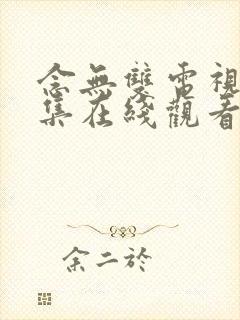 念無雙電視
集在綫觀看
余二於